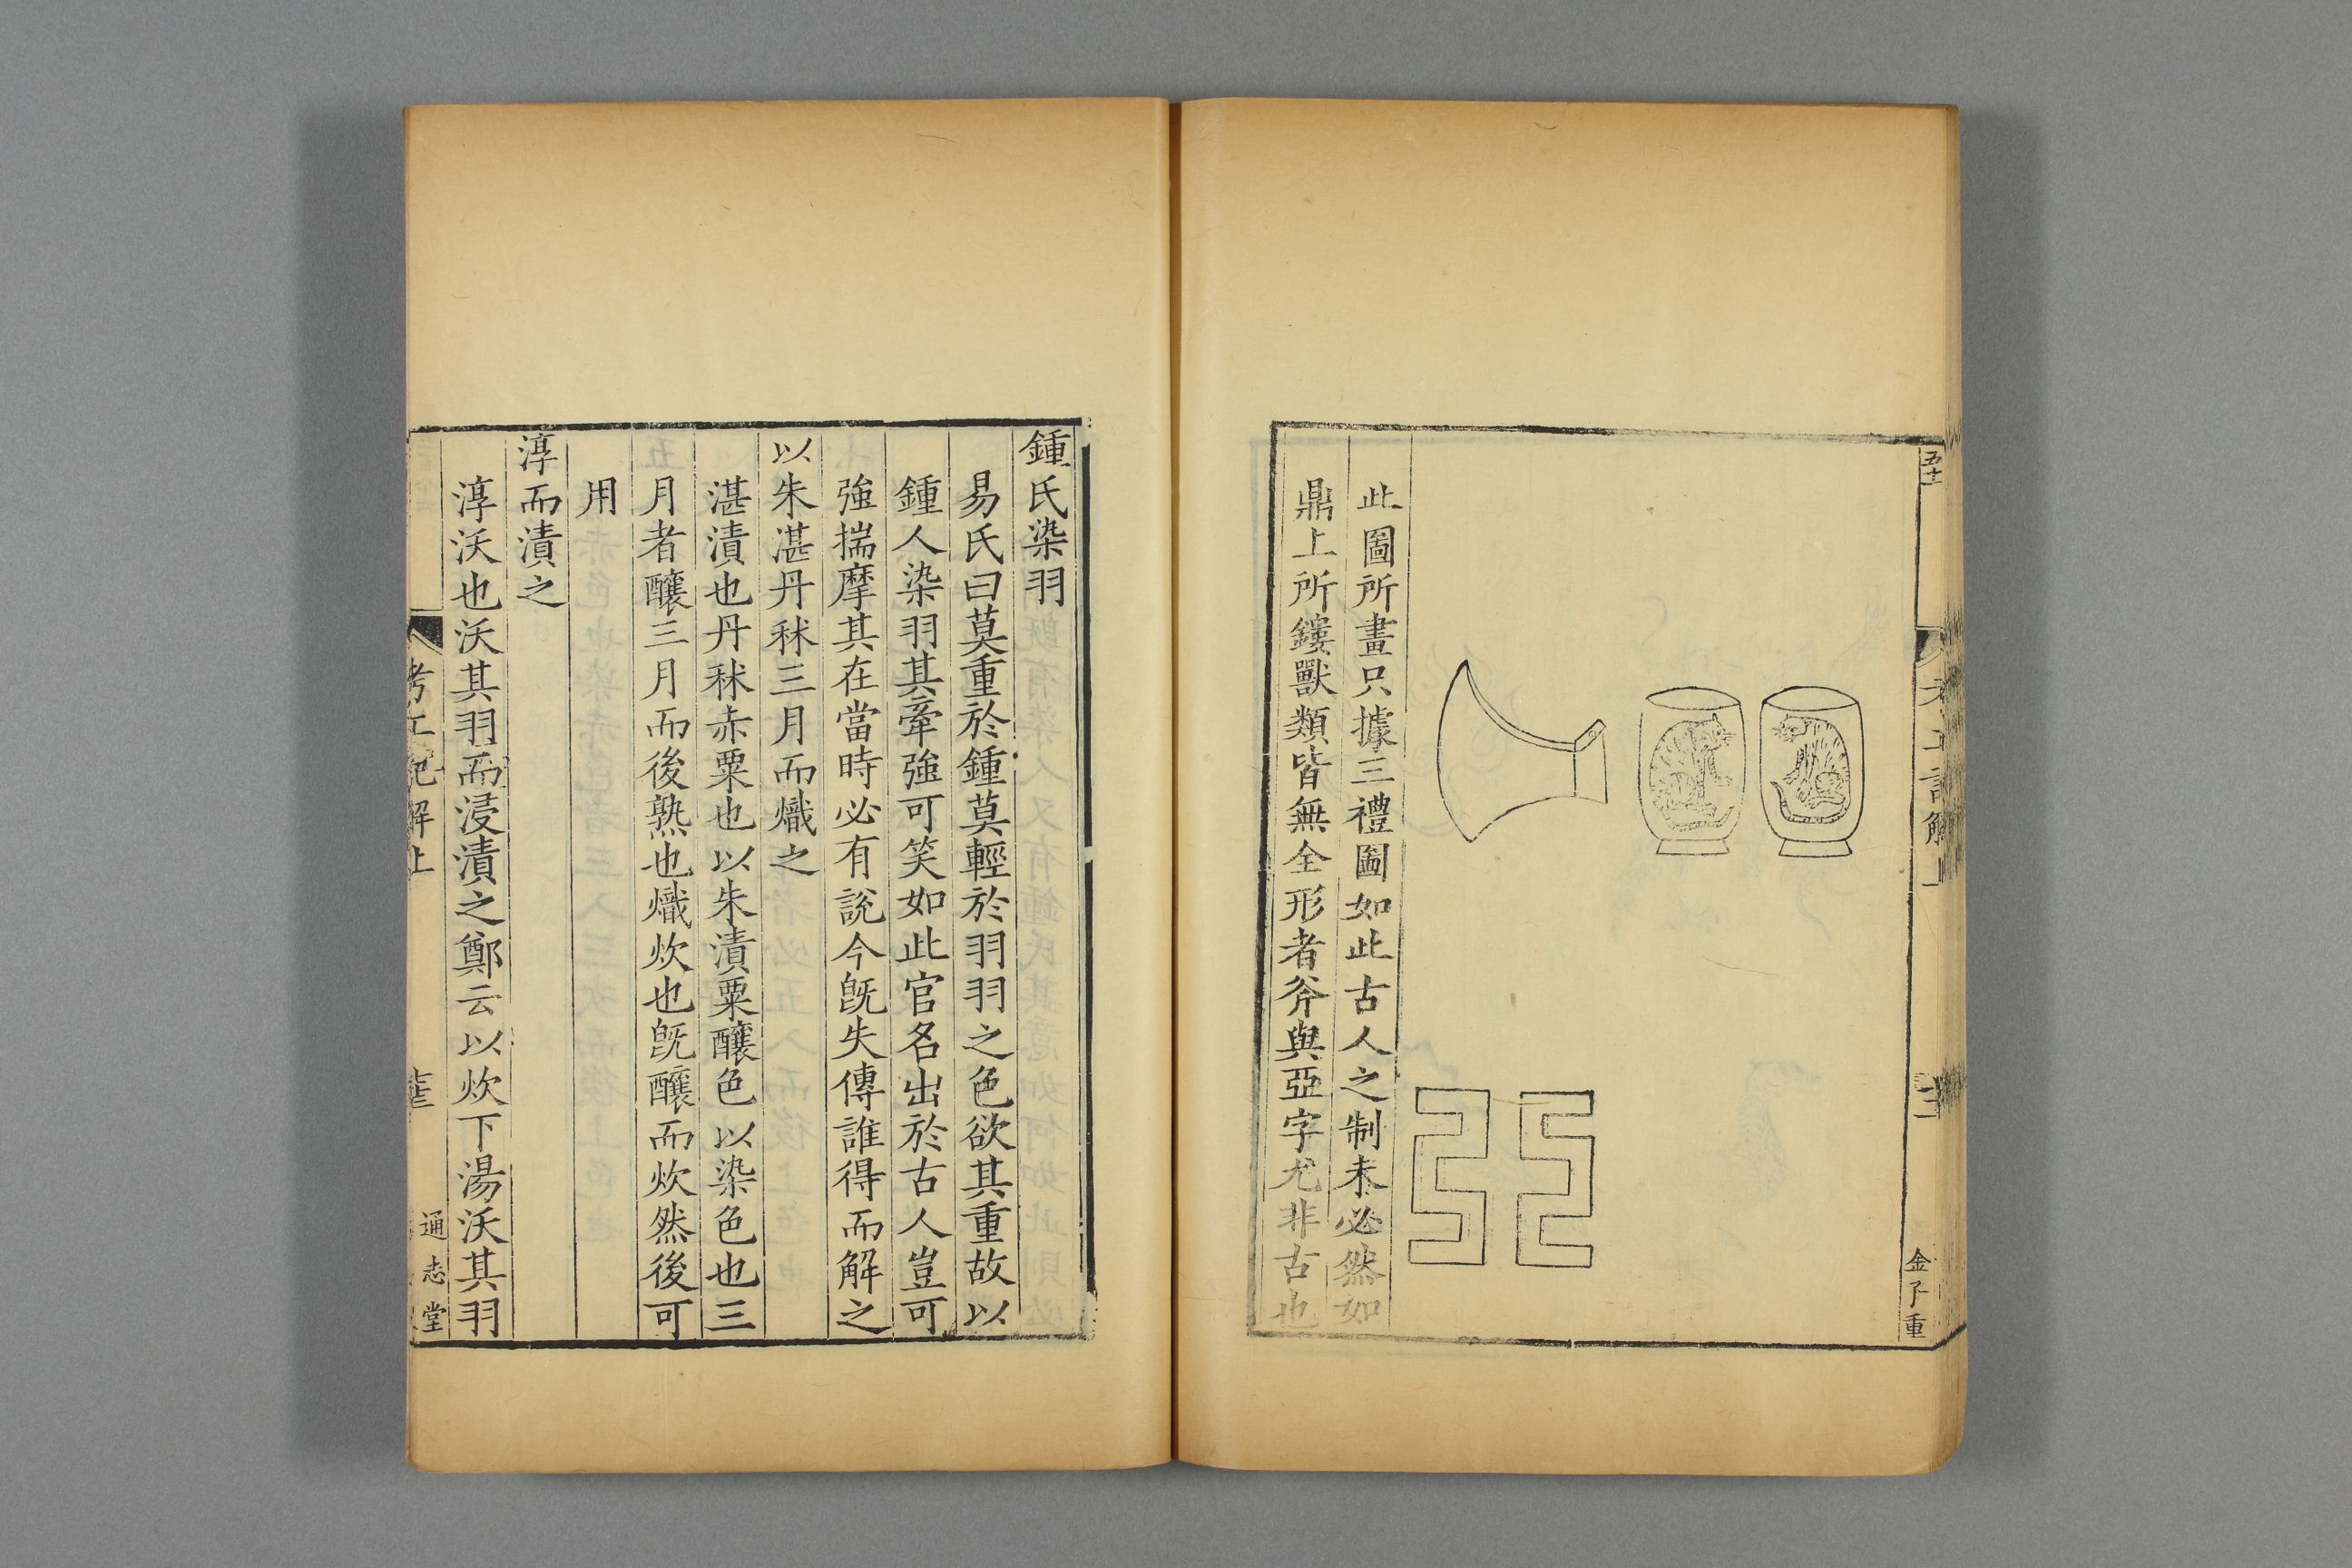 此圖所畫只據三禮圖如此古人之制未必然如
鼎上所鏤獸類皆無全形者斧與亞字尤非古也
金子重
鍾氏染羽
易氏曰莫重於鍾莫輕於羽羽之色欲其重故以
鍾人染羽其牽強可笑如此官名出於古人豈可
強揣摩其在當時必有說今旣失傳誰得而解之
以朱湛丹秫三月而熾之
湛漬也丹秫赤粟也以朱漬粟釀色以染色也三
月者釀三月而後熟也熾炊也旣釀而炊然後可
用
淳而漬之
淳沃也沃其羽而浸漬之鄭云以炊下湯沃其羽
考工記解上
通志堂